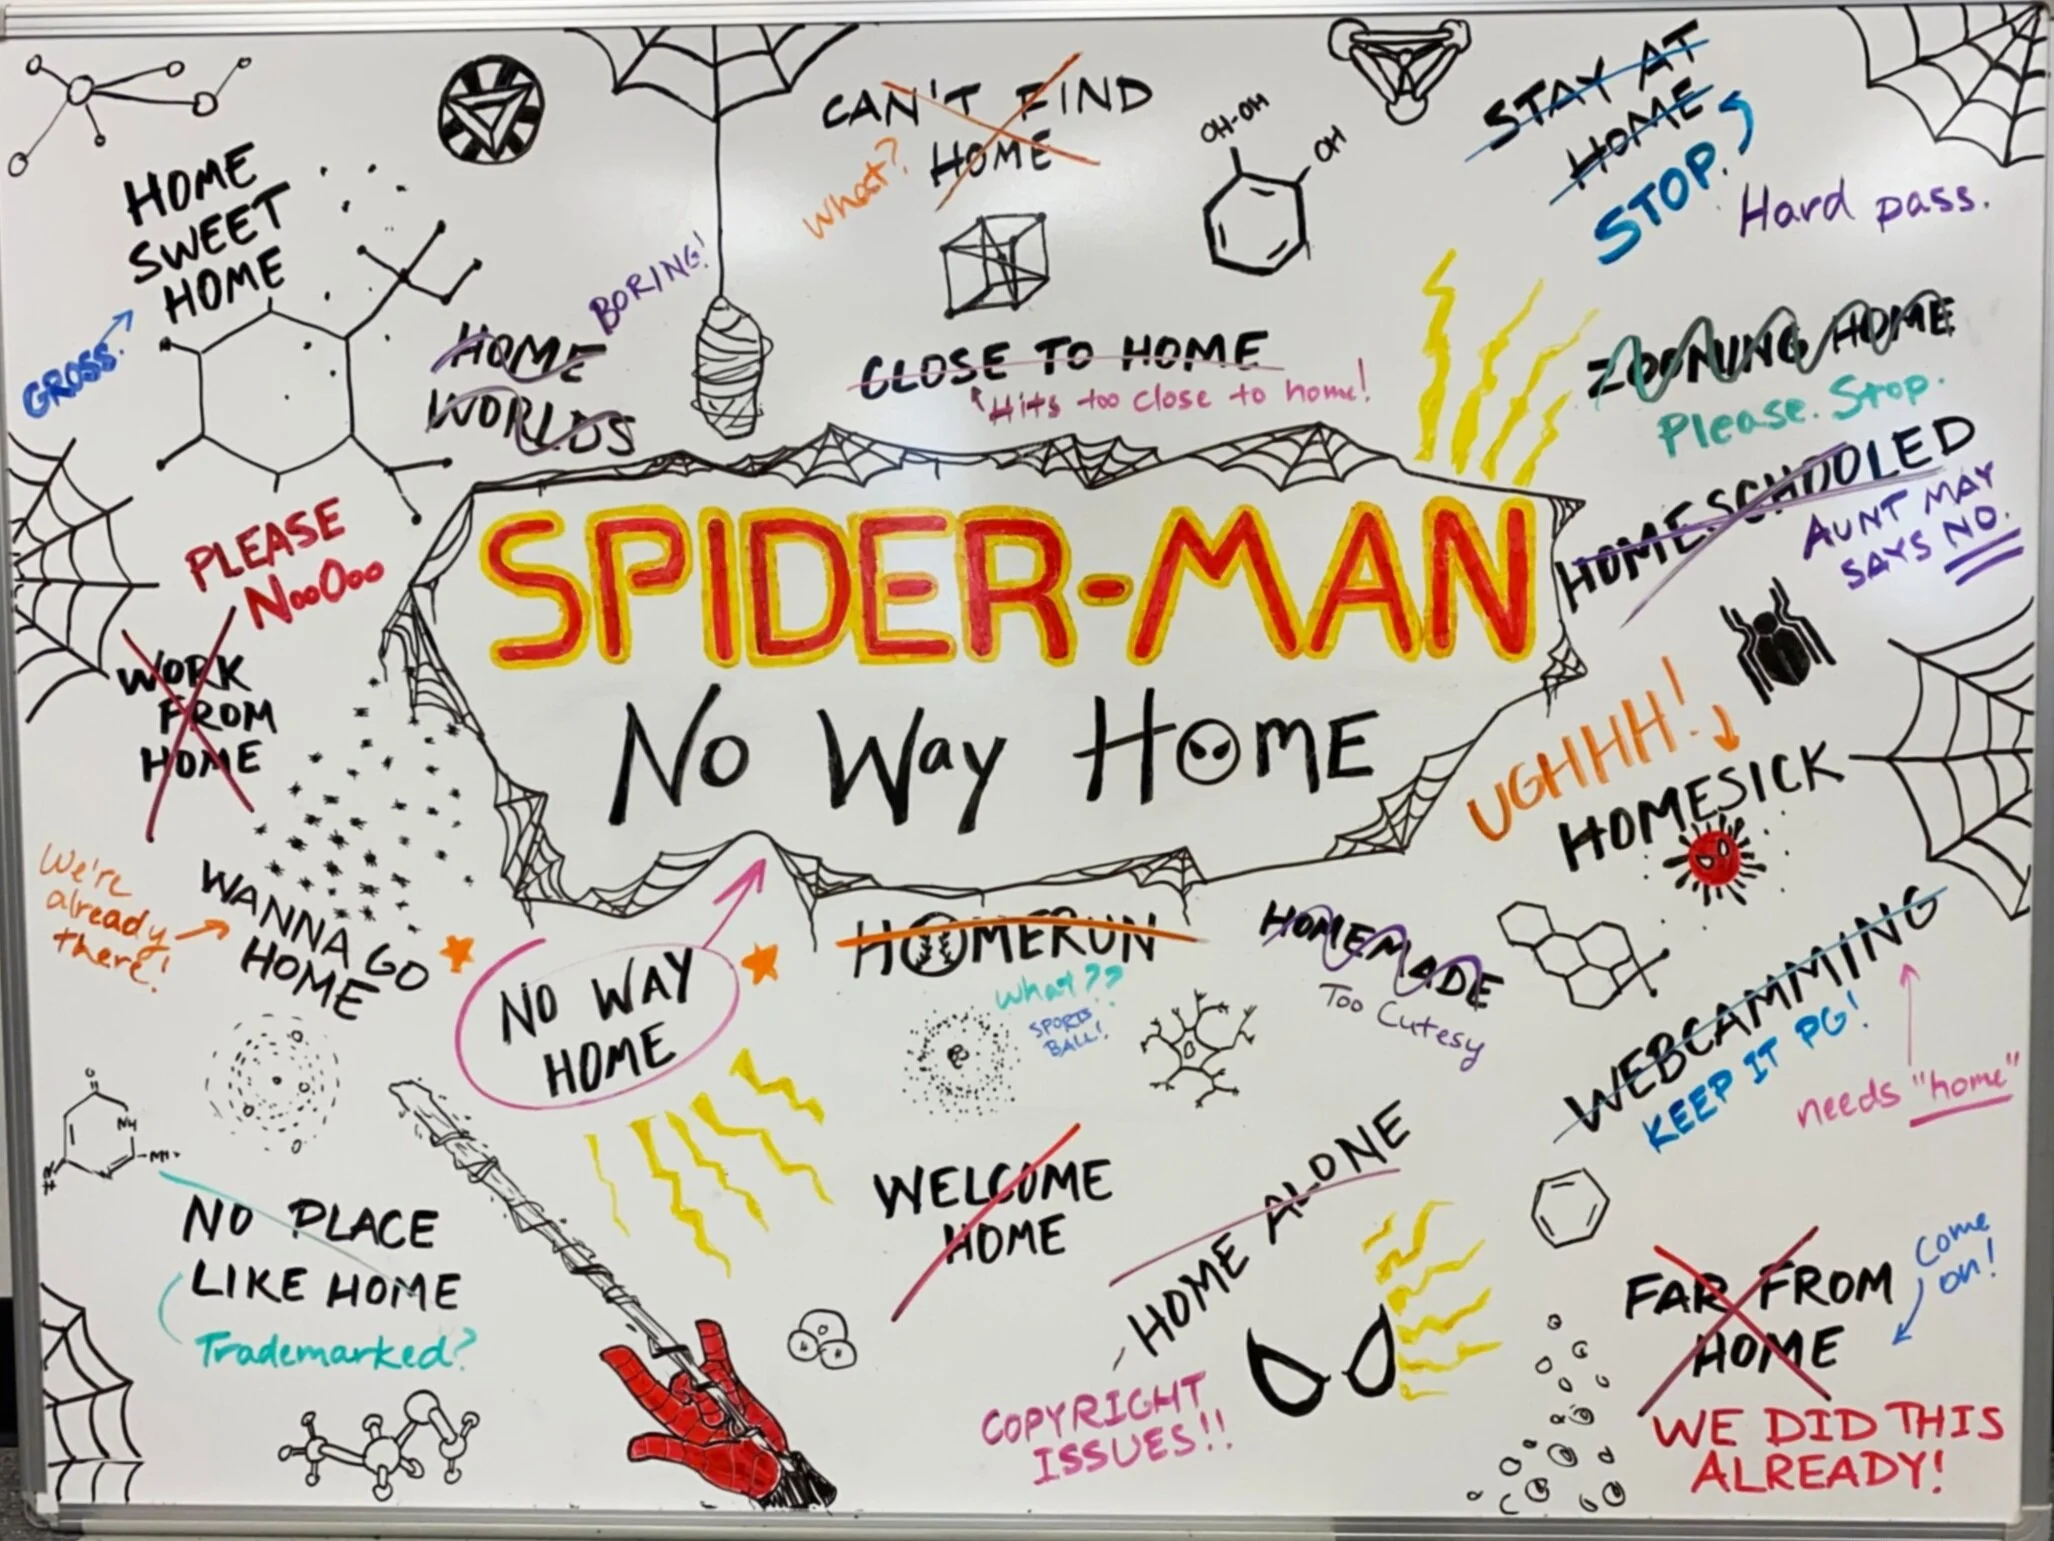 CAN'T FIND
HOME
What?
OH-OH
OH
STAY AT
HOME
STOP.
Hard pass.
HOME
SWEET
HOME
GROSS.
HOME
WORLDS
BORING!
CLOSE TO HOME
Hits too close to home!
ZOOMING HOME
Please. Stop.
HOMESCHOOLED
AUNT MAY
SAYS NO.
PLEASE
NooOoo
WORK
FROM
HOME
SPIDER-MAN
No Way HOME
UGHHH!
HOMESICK
We're
already
there!
WANNA GO
HOME
NO WAY
HOME
HOMERUN
What??
SPORTS
BALL!
HOMEMADE
Too Cutesy
WEBCAMMING
KEEP IT PG!
needs "home"
NO PLACE
LIKE HOME
Trademarked?
WELCOME
HOME
HOME ALONE
COPYRIGHT
ISSUES!!
FAR FROM
HOME
Come
on!
WE DID THIS
ALREADY!